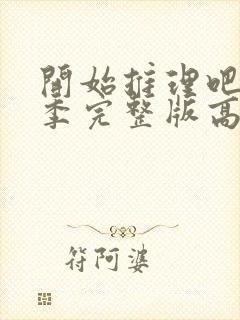 開始推理吧
季完整版高
符阿婆